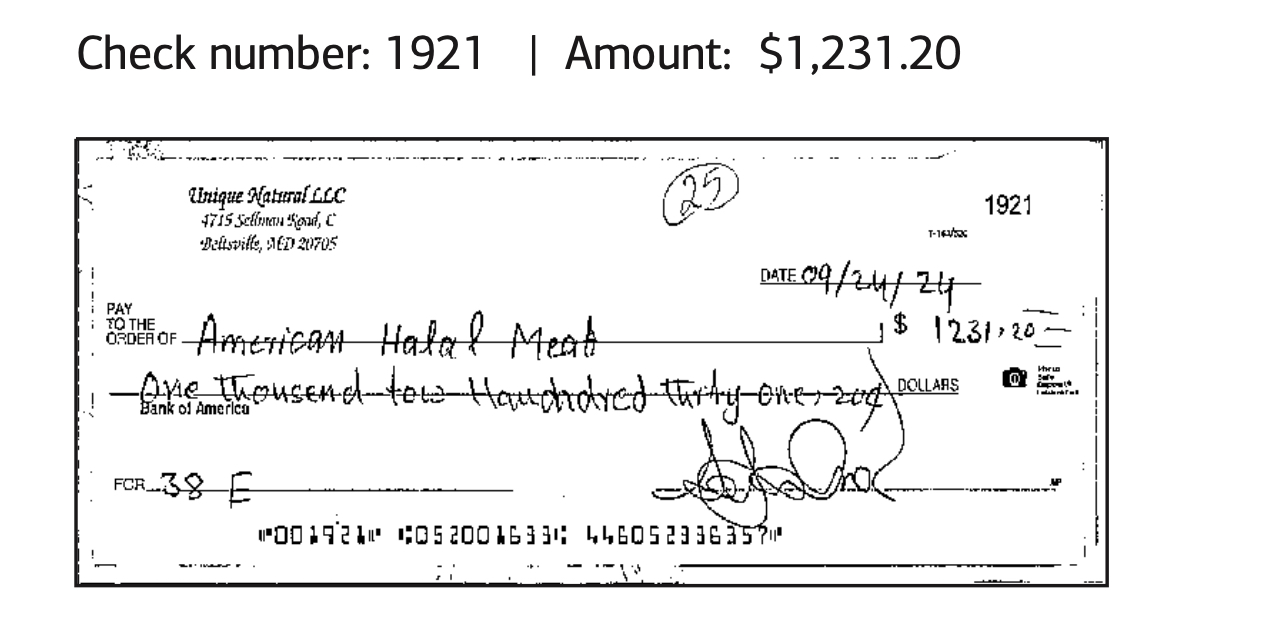 Check number: 1921 | Amount: $1,231.20
25
Unique Natural LLC
4715 Sellman Road, C
Beltsville, MD 20705
1921
DATE 09/24/24
PAY
TO THE
ORDER OF American Halal Meat $ 1231,20
One thousend tow Haundndred thirty one, 20¢ DOLLARS
Bank of America
FOR 38 E
⑈001921⑈ ⑆052001633⑆ 446052336357⑈